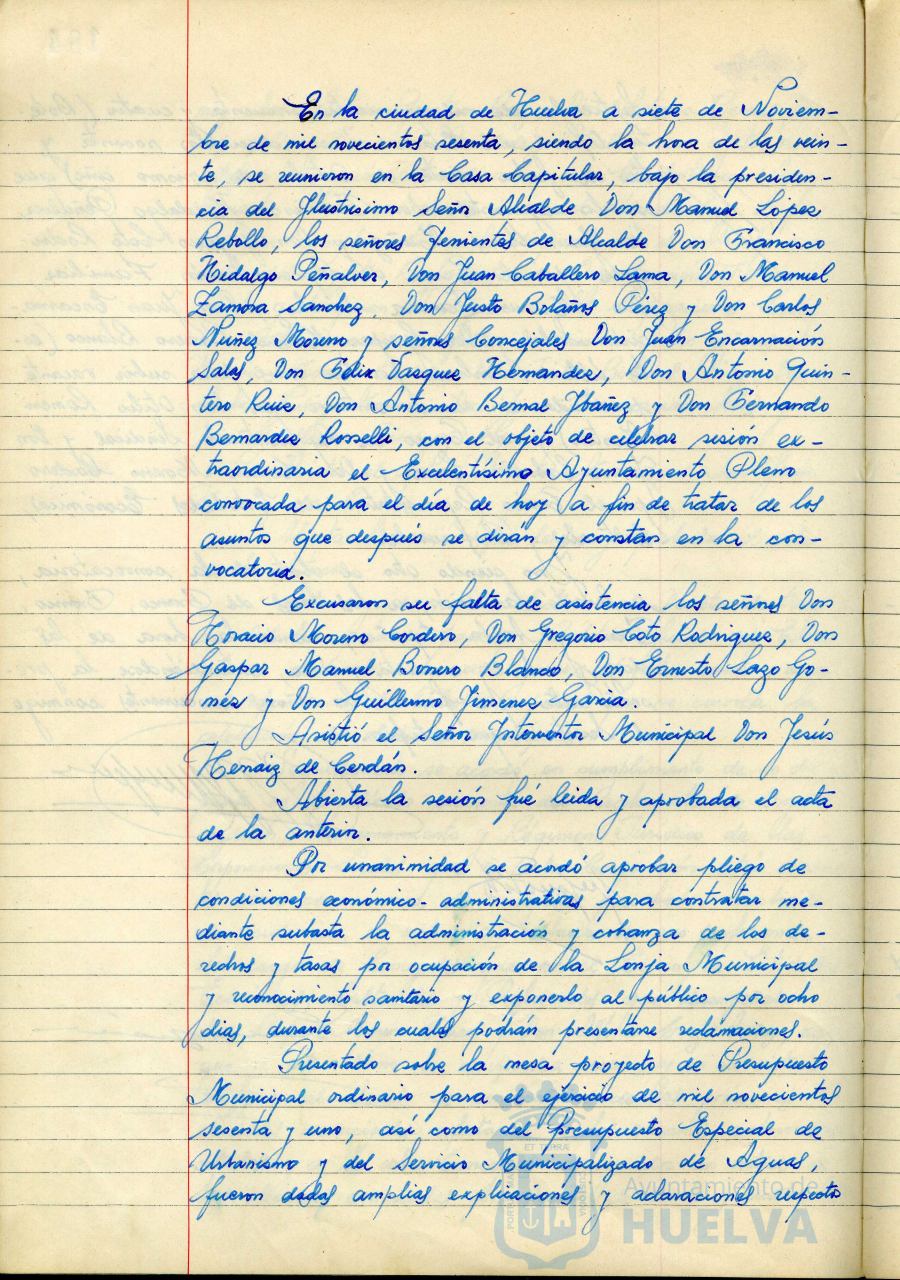 En la ciudad de Huelva a siete de Noviem-
bre de mil novecientos sesenta, siendo la hora de las vein-
te, se reunieron en la Casa Capitular, bajo la presiden-
cia del Ilustrisimo Señor Alcalde Don Manuel López
Rebollo, los señores Tenientes de Alcalde Don Francisco
Hidalgo Peñalver, Don Juan Caballero Lama, Don Manuel
Zamora Sanchez, Don Justo Bolaños Pérez y Don Carlos
Nuñez Moreno y señores Concejales Don Juan Encarnación
Salas, Don Felix Vasquez Hernandez, Don Antonio Quin-
tero Ruiz, Don Antonio Bernal Ybañez y Don Fernando
Bernardez Rosselli, con el objeto de celebrar sesión ex-
traordinaria el Excelentísimo Ayuntamiento Pleno
convocada para el día de hoy a fin de tratar de los
asuntos que después se dirán y constan en la con-
vocatoria.
Excusaron su falta de asistencia los señores Don
Horacio Moreno Cordero, Don Gregorio Coto Rodriguez, Don
Gaspar Manuel Borrero Blanco, Don Ernesto Lazo Go-
mez y Don Guillermo Jimenez Garcia.
Asistió el Señor Interventor Municipal Don Jesús
Hernaiz de Cerdán.
Abierta la sesión fué leida y aprobada el acta
de la anterior.
Por unanimidad se acordó aprobar pliego de
condiciones económico-administrativas para contratar me-
diante subasta la administración y cobranza de los de-
rechos y tasas por ocupación de la Lonja Municipal
y reconocimiento sanitario y exponerlo al público por ocho
dias, durante los cuales podrán presentarse reclamaciones.
Presentado sobre la mesa proyecto de Presupuesto
Municipal ordinario para el ejercicio de mil novecientos
sesenta y uno, así como del Presupuesto Especial de
Urbanismo y del Servicio Municipalizado de Aguas,
fueron dadas amplias explicaciones y aclaraciones respecto
Ayuntamiento de
HUELVA